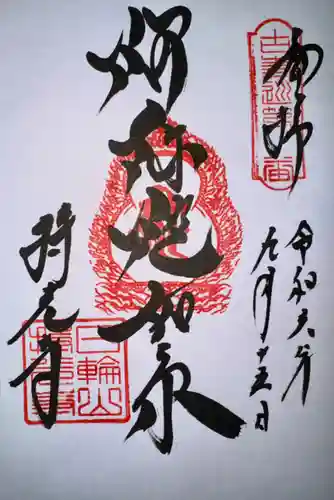 奉拝
令和六年
九月十五日
阿弥陀如来
持光寺
日輪山
持光寺